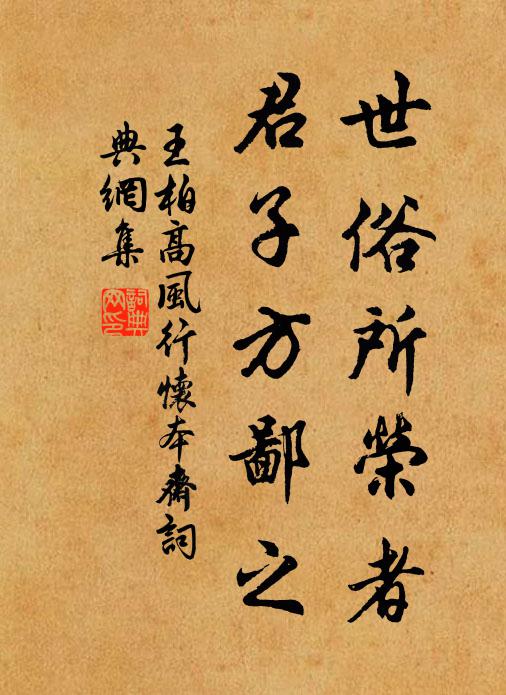 世俗所榮者
君子方鄙之
王柏高風行懷本齋詞
典網集
詞典
网印